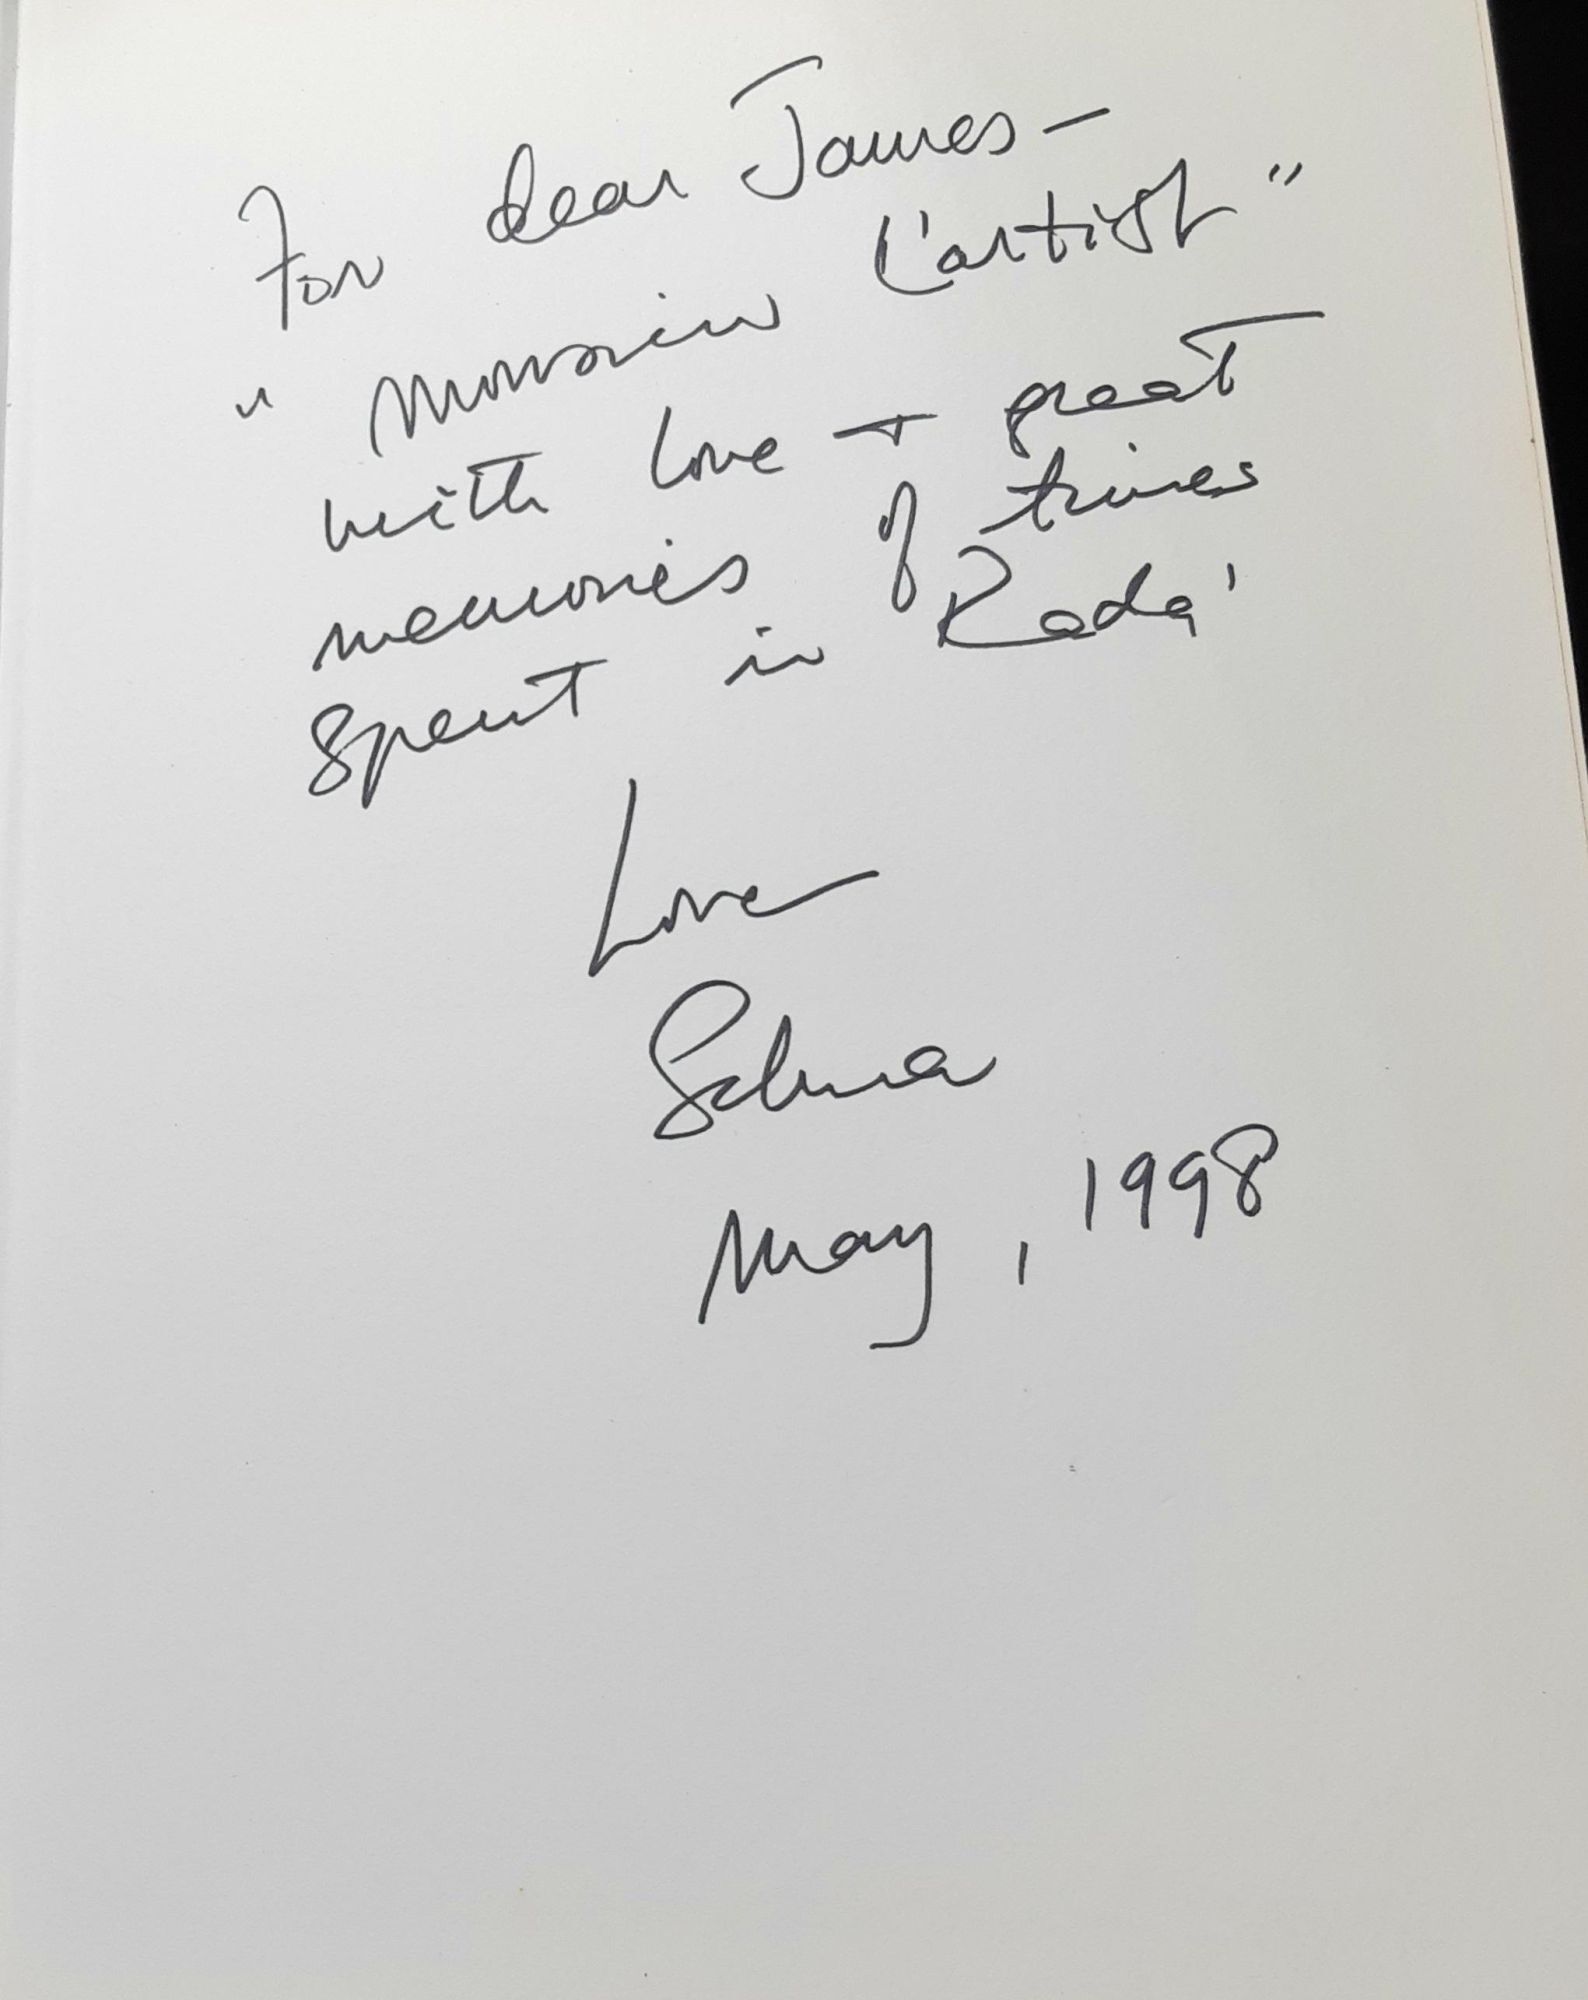 For dear James –
" Monsieur L'artist "
with love + great
memories of times
spent in Rada'
Love
Selma
May, 1998